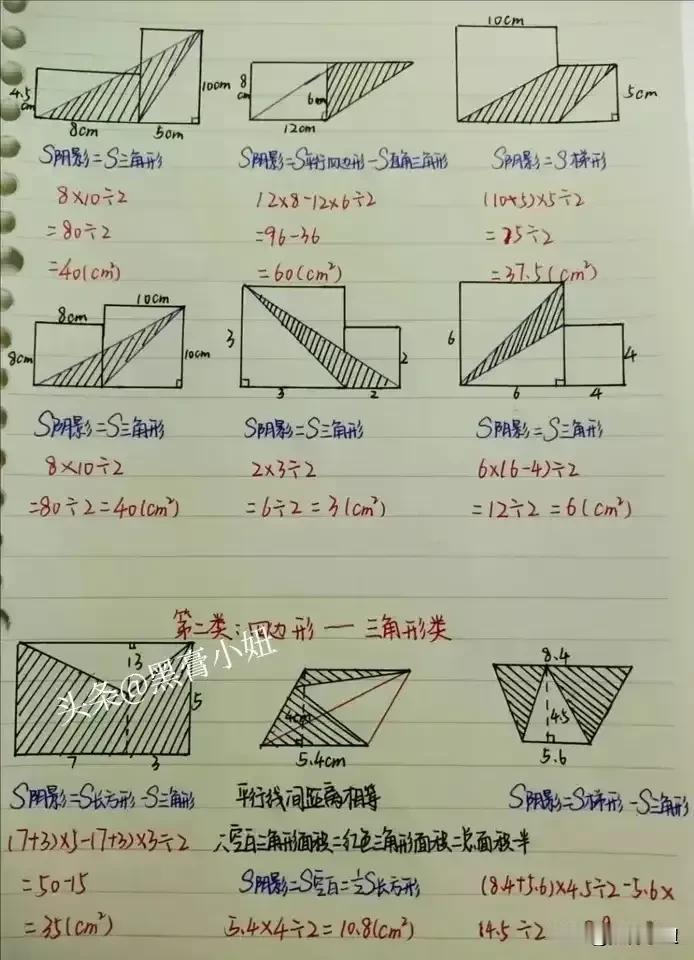 10cm
4.5cm
10cm
8cm
6cm
5cm
8cm
5cm
12cm
S阴影=S三角形
S阴影=S平行四边形-S直角三角形
S阴影=S梯形
8×10÷2
12×8-12×6÷2
(10+5)×5÷2
=80÷2
=96-36
=75÷2
=40(cm²)
=60(cm²)
=37.5(cm²)
10cm
8cm
8cm
10cm
3
2
6
4
3
2
6
4
S阴影=S三角形
S阴影=S三角形
S阴影=S三角形
8×10÷2
2×3÷2
6×(6-4)÷2
=80÷2=40(cm²)
=6÷2=3(cm²)
=12÷2=6(cm²)
第二类:四边形—三角形类
头条@黑膏小妞
3
5
7
3
4cm
5.4cm
8.4
4.5
5.6
S阴影=S长方形-S三角形
平行线间距离相等
S阴影=S梯形-S三角形
(7+3)×5-(7+3)×3÷2
∴空白三角形面积=红色三角形面积=总面积一半
=50-15
S阴影=S空白=½S长方形
(8.4+5.6)×4.5÷2-5.6×
=35(cm²)
5.4×4÷2=10.8(cm²)
4.5÷2